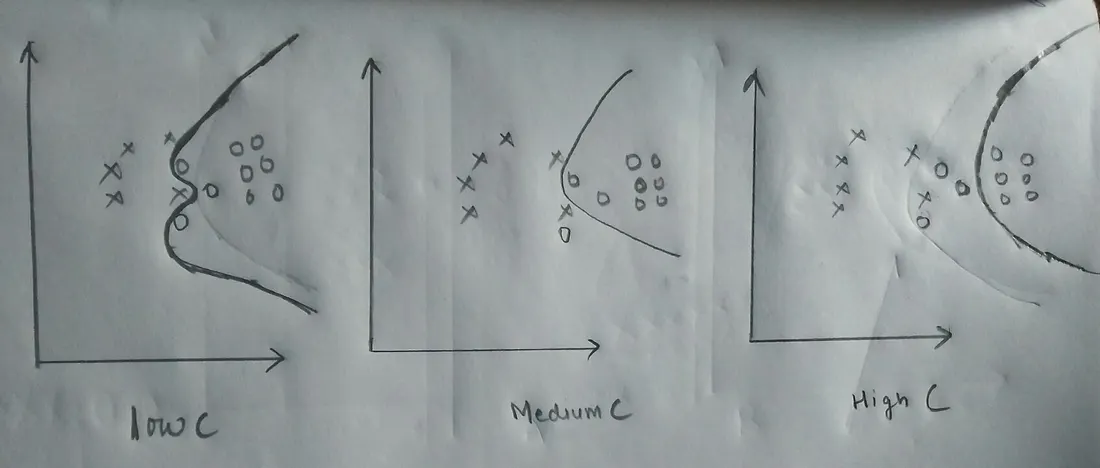 low C
Medium C
High C